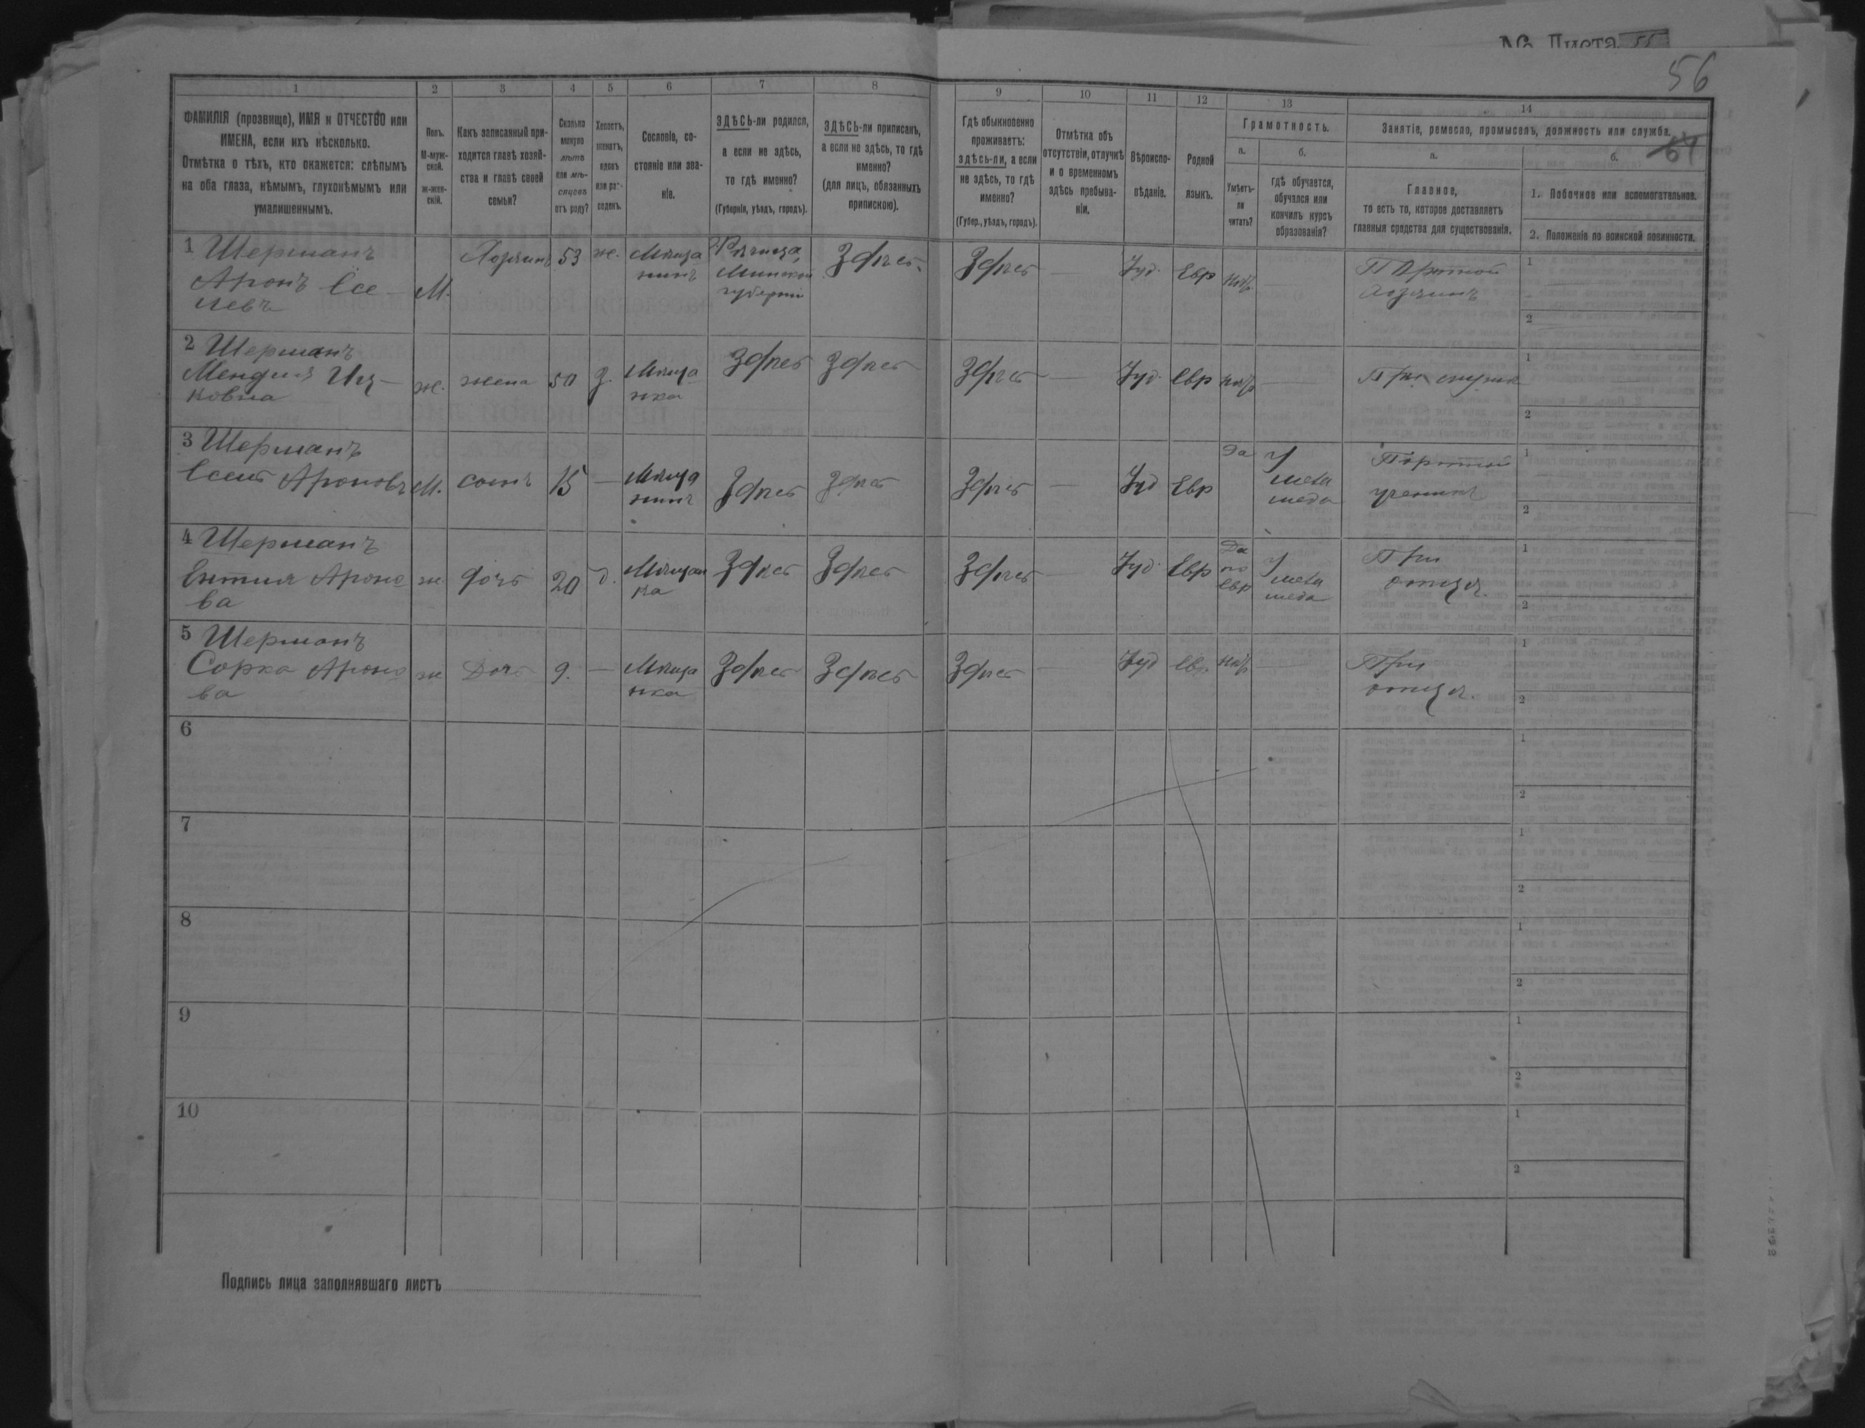 № Листа 55
56
1 2 3 4 5 6 7 8 9 10 11 12 13 14
ФАМИЛІЯ (прозвище), ИМЯ и ОТЧЕСТВО или
ИМЕНА, если ихъ нѣсколько.
Отмѣтка о тѣхъ, кто окажется: слѣпымъ
на оба глаза, нѣмымъ, глухонѣмымъ или
умалишеннымъ.
Полъ.
М-муж-
ской.
Ж-жен-
скій.
Какъ записанный при-
ходится главѣ хозяй-
ства и главѣ своей
семьи?
Сколько
минуло
лѣтъ
или мѣ-
сяцевъ
отъ роду?
Холостъ,
женатъ,
вдовъ
или раз-
веденъ.
Сословіе, со-
стояніе или зва-
ніе.
ЗДѢСЬ-ли родился,
а если не здѣсь,
то гдѣ именно?
(Губернія, уѣздъ, городъ).
ЗДѢСЬ-ли приписанъ,
а если не здѣсь, то гдѣ
именно?
(для лицъ, обязанныхъ
припискою).
Гдѣ обыкновенно
проживаетъ:
здѣсь-ли, а если
не здѣсь, то гдѣ
именно?
(Губер., уѣздъ, городъ).
Отмѣтка объ
отсутствіи, отлучкѣ
и о временномъ
здѣсь пребыва-
ніи.
Вѣроиспо-
вѣданіе.
Родной
языкъ.
Грамотность.
а.
Умѣетъ-
ли
читать?
б.
гдѣ обучается,
обучался или
кончилъ курсъ
образованія?
Занятіе, ремесло, промыселъ, должность или служба.
а.
Главное,
то есть то, которое доставляетъ
главныя средства для существованія.
б.
1. Побочное или вспомогательное.
2. Положеніе по воинской повинности.
1 Шерманъ
Аронъ Іосе
левъ
М.
Хозяинъ
53
ж.
Мѣща
нинъ
Рѣчица,
Минской
губерніи
Здѣсь
Здѣсь
—
Іуд.
Евр
нѣтъ
—
Портной
хозяинъ
1
2
2 Шерманъ
Ицковна
ж.
жена
50
З.
Мѣща
нка
Здѣсь
Здѣсь
Здѣсь
—
Іуд.
Евр
нѣтъ
—
При мужѣ
1
2
3 Шерманъ
Ароновъ
М.
сынъ
15
—
Мѣща
нинъ
Здѣсь
Здѣсь
Здѣсь
—
Іуд
Евр
Да
У
мела
меда
Портной
ученикъ
1
2
4 Шерманъ
Ароно
ва
ж
дочь
20
д.
Мѣщан
ка
Здѣсь
Здѣсь
Здѣсь
—
Іуд.
Евр
Да
по
евр
У
мела
меда
При
отцѣ.
1
2
5 Шерманъ
Сорка Ароно
ва
ж
Дочь
9.
—
Мѣща
нка
Здѣсь
Здѣсь
Здѣсь
—
Іуд
Евр.
нѣтъ
—
При
отцѣ.
1
2
6
1
2
7
1
2
8
1
2
9
1
2
10
1
2
Подпись лица заполнявшаго листъ